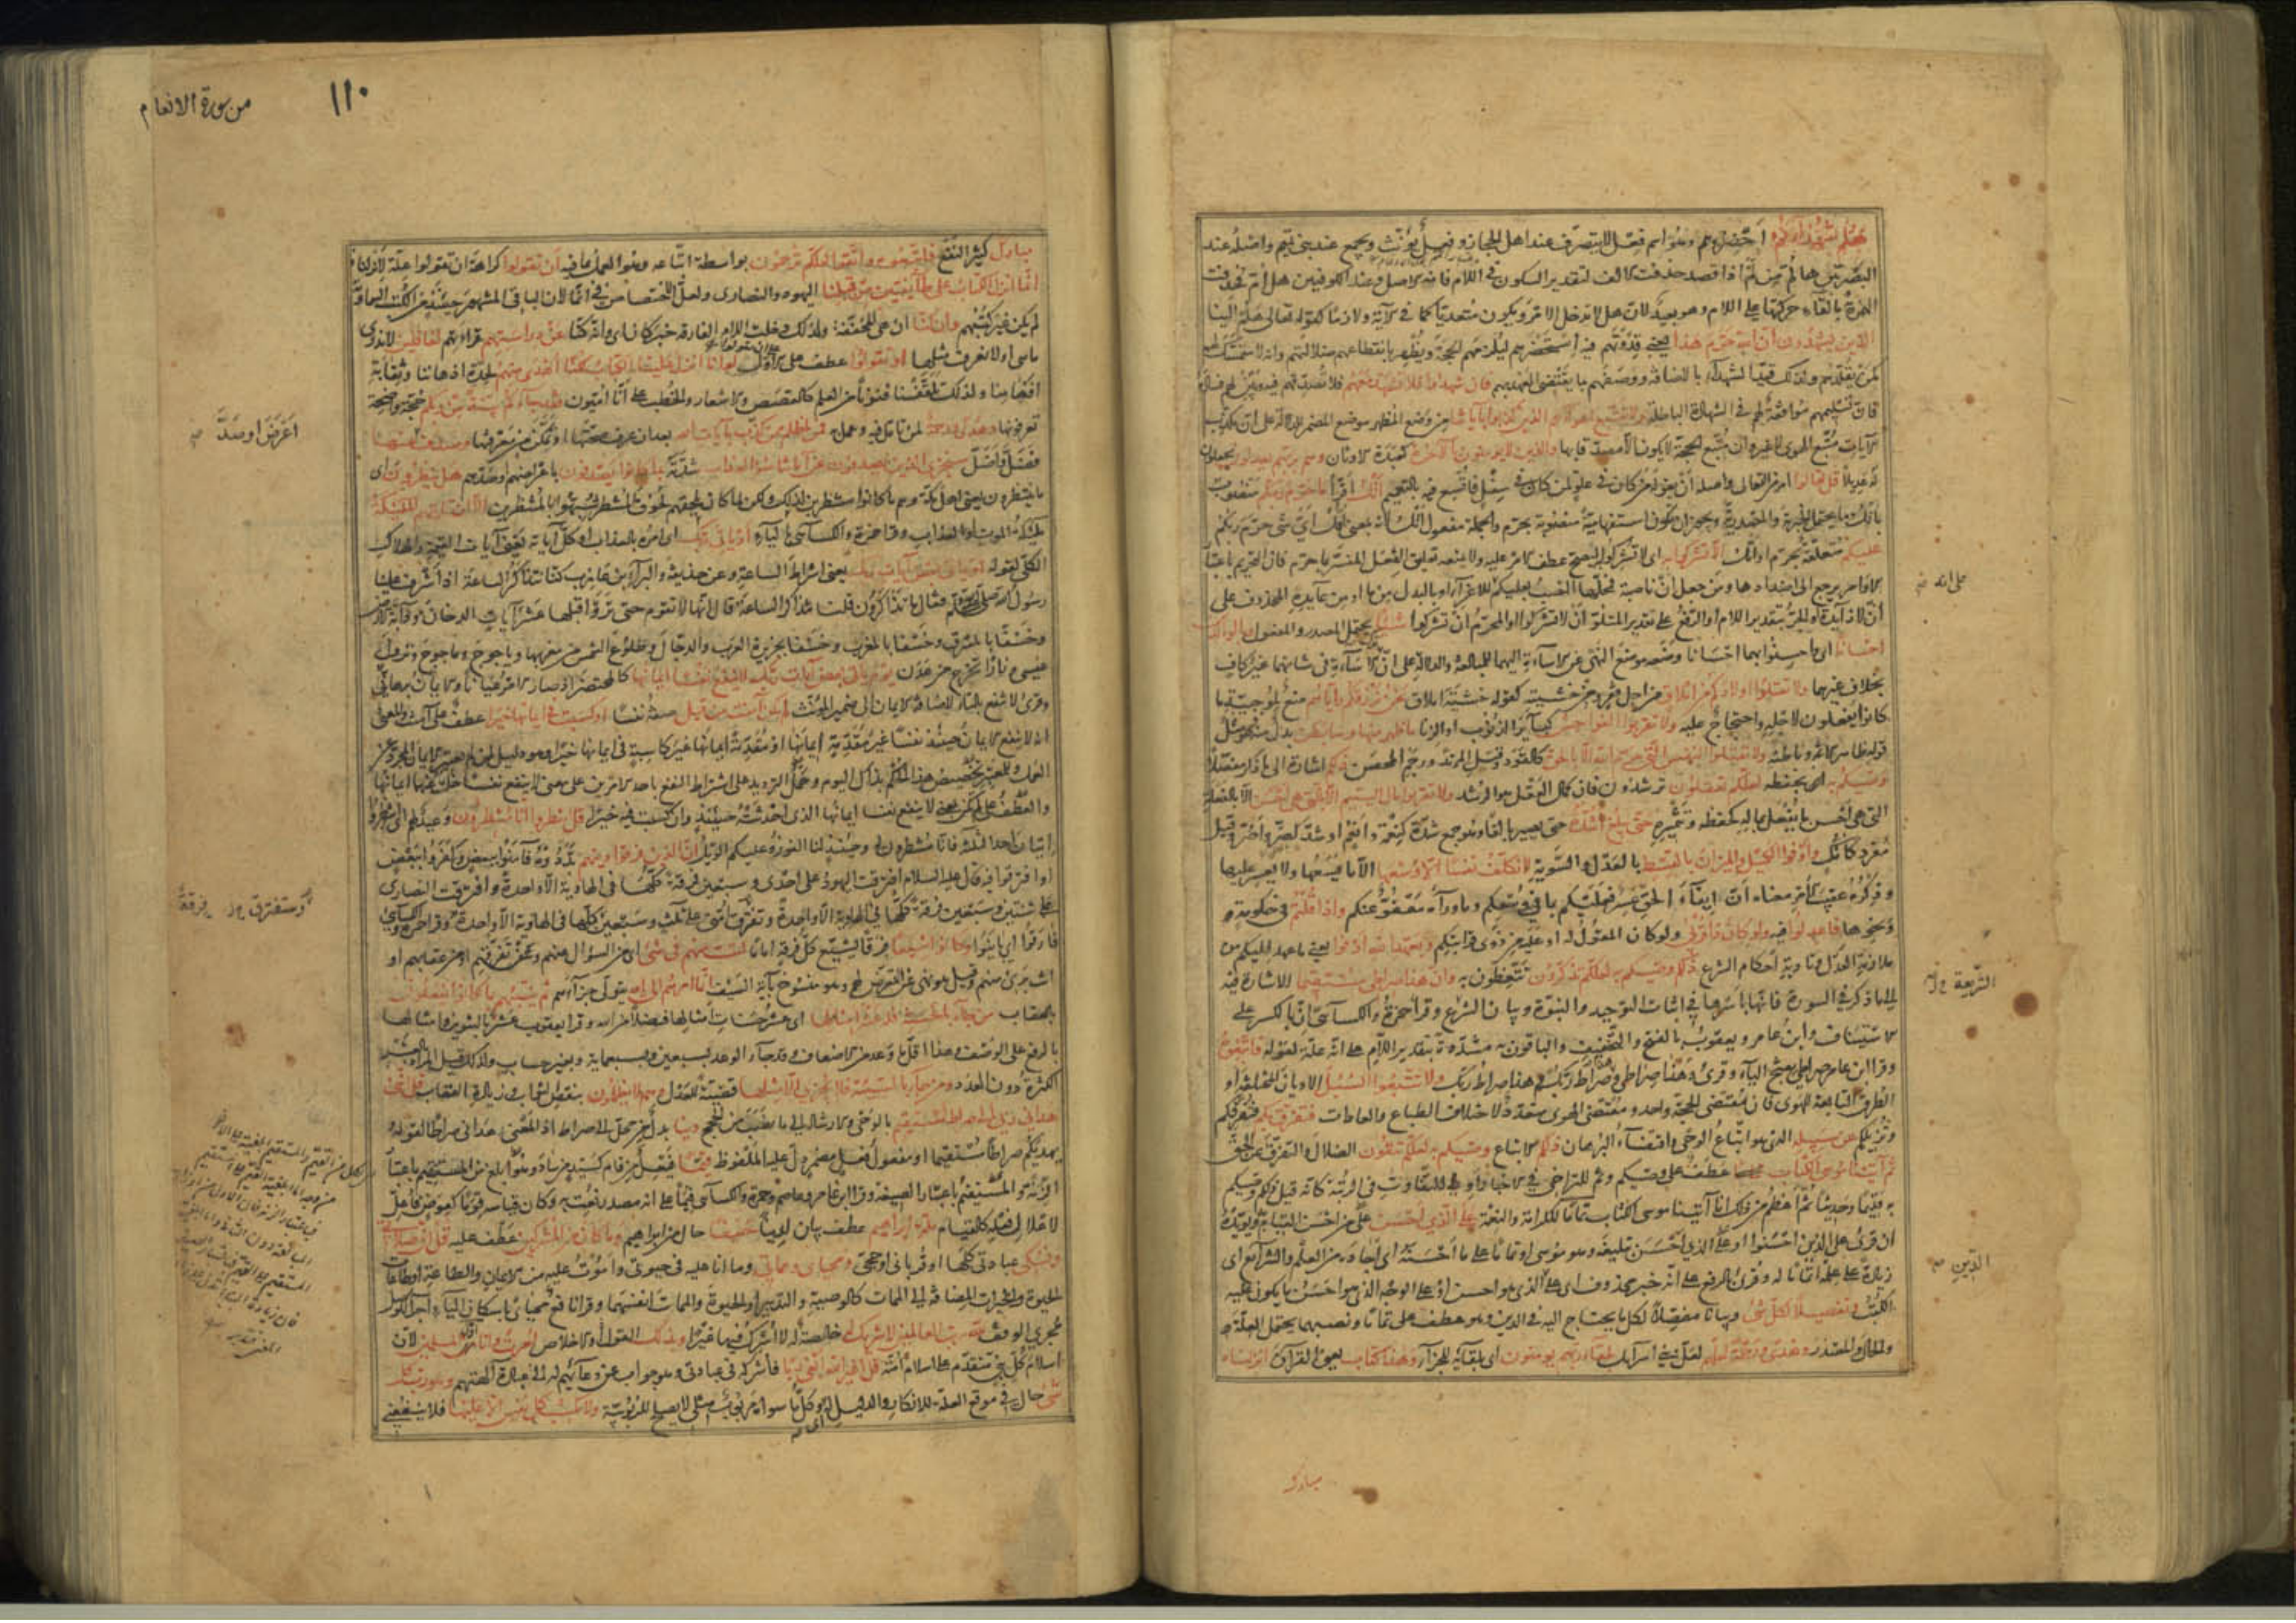 هلم شهداءكم احضروهم وهو اسم فعل لا يتصرف عند اهل الحجاز وفعل يؤنث ويجمع عند بني تميم واصله عند
البصريين هالم من لم اذا قصد حذفت الالف لتقدير السكون في اللام فانه الاصل وعند الكوفيين هل ام فحذفت
الهمزة بالقاء حركتها على اللام وهو بعيد لان هل لا تدخل الامر ويكون متعديا كما في الاية ولازما كقوله تعالى هلم الينا
الذين يشهدون ان الله حرم هذا يعني قدوتهم فيه استحضرهم ليلزمهم الحجة ويظهر بانقطاعهم ضلالتهم وانه لا متمسك لهم
كمن يقلدهم ولذلك قيد الشهداء بالاضافة ووصفهم بما يقتضي العهد بهم فان شهدوا فلا تشهد معهم فلا تصدقهم فيه وبين لهم فساده
فان تسليمهم موافقة لهم في الشهادة الباطلة ولا تتبع اهواء الذين كذبوا باياتنا من وضع المظهر موضع المضمر للدلالة على ان مكذب
الايات متبع الهوى لا غير وان متبع الحجة لا يكون الا مصدقا بها والذين لا يؤمنون بالاخرة كعبدة الاوثان وهم بربهم يعدلون يجعلون
له عديلا قل تعالوا امر من التعالي واصله ان يقوله من كان في علو لمن كان في سفل فاتسع فيه بالتعميم اتل اقرأ ما حرم ربكم منصوب
باتل وما يحتمل الخبرية والمصدرية ويجوز ان تكون استفهامية منصوبة بحرم والجملة مفعول اتل لانه بمعنى اقل اي شئ حرم ربكم
عليكم متعلق بحرم او اتل الا تشركوا به اي لا تشركوا ليصح عطف الامر عليه ولا يمنعه تعليق الفعل المفسر بما حرم فان التحريم باعتبار
الاوامر يرجع الى اضدادها ومن جعل ان ناصبة فمحلها النصب بعليكم للاغراء او بالبدل من ما او من عايده المحذوف على
ان لا زايدة او الجر بتقدير اللام او الرفع على تقدير المتلو ان لا تشركوا او المحرم ان تشركوا شيئا يحتمل المصدر والمفعول وبالوالدين
احسانا اي واحسنوا بهما احسانا وضعه موضع النهي عن الاساءة اليهما للمبالغة والدلالة على ان ترك الاساءة في شانهما غير كاف
بخلاف غيرهما ولا تقتلوا اولادكم من املاق من اجل فقر ومن خشيته كقوله خشية املاق نحن نرزقكم واياهم منع لموجبية ما
كانوا يفعلون لاجله واحتجاج عليه ولا تقربوا الفواحش كبائر الذنوب او الزنا ما ظهر منها وما بطن بدل منه وهو مثل
قوله ظاهر الاثم وباطنه ولا تقتلوا النفس التي حرم الله الا بالحق كالقود وقتل المرتد ورجم المحصن ذلكم اشارة الى ما ذكر مفصلا
وصيكم به اي بحفظه لعلكم تعقلون ترشدون فان كمال العقل هو الرشد ولا تقربوا مال اليتيم الا بالتي هي احسن الا بالفعلة
التي هي احسن ما يفعل بماله كحفظه وتثميره حتى يبلغ اشده حتى يصير بالغا وهو جمع شدة كنعمة وانعم او شد كصر واصر وقيل
مفرد كانك واوفوا الكيل والميزان بالقسط بالعدل والتسوية لا نكلف نفسا الا وسعها الا ما يسعها ولا يعسر عليها
وذكره عقيب الامر معناه ان ايفاء الحق عسر فعليكم بما في وسعكم وما وراءه معفو عنكم واذا قلتم في حكومة
ونحوها فاعدلوا فيه ولو كان ذا قربى ولو كان المقول له او عليه من ذوي قرابتكم وبعهد الله اوفوا يعني ما عهد اليكم من
ملازمة العدل وتادية احكام الشرع ذلكم وصيكم به لعلكم تذكرون تتعظون به وان هذا صراطي مستقيما الاشارة فيه
الى ما ذكر في السورة فانها باسرها في اثبات التوحيد والنبوة وبيان الشرع وقرا حمزة والكسائي ان بالكسر على
الاستيناف وابن عامر ويعقوب بالفتح والتخفيف والباقون به مشددة بتقدير اللام على انه علة لقوله فاتبعوه
وقرا ابن عامر صراطي بفتح الياء وقرئ وهذا صراطي وهذا صراط ربكم وهذا صراط ربك ولا تتبعوا السبل الاديان المختلفة او
الطرق التابعة للهوى فان مقتضى الحجة واحد ومقتضى الهوى متعدد لاختلاف الطباع والعادات فتفرق بكم فتفرقكم
وتزيلكم عن سبيله الذي هو اتباع الوحي واقتفاء البرهان ذلكم الاتباع وصيكم به لعلكم تتقون الضلال والتفرق عن الحق
ثم آتينا موسى الكتاب عطف على وصيكم وثم للتراخي في الاخبار او للتفاوت في الرتبة كانه قيل ذلكم وصيكم
به قديما وحديثا ثم اعظم من ذلك انا آتينا موسى الكتاب تماما للكرامة والنعمة على الذي احسن على من احسن القيام به ويؤيده
ان قرئ على الذين احسنوا او على الذي احسن تبليغه وهو موسى او تماما على ما احسنه اي اجاده من العلم والشرائع اي
زيادة على علمه اتماما له وقرئ بالرفع على انه خبر محذوف اي على الذي هو احسن او على الوجه الذي هو احسن ما يكون عليه
الكتب وتفصيلا لكل شئ وبيانا مفصلا لكل ما يحتاج اليه في الدين وهو عطف على تماما ونصبهما يحتمل العلة
والحال والمصدر وهدى ورحمة لعلهم لعل بني اسرائيل بلقاء ربهم يؤمنون اي بلقائه للجزاء وهذا كتاب يعني القرآن انزلناه
على انه
الشريعة
الدين
مبارك
من سورة الانعام
١١٠
مبارك كثير النفع فاتبعوه واتقوا لعلكم ترحمون بواسطة اتباعه وهو العمل بما فيه ان تقولوا كراهة ان تقولوا علة لانزلناه
انما انزل الكتاب على طائفتين من قبلنا اليهود والنصارى ولعل الاختصاص في انما لان الباقي المشهور حينئذ من الكتب السماوية
لم يكن غير كتبهم وان كنا ان هي المخففة ولذلك دخلت اللام الفارقة خبر كان اي وانه كنا عن دراستهم قراءتهم لغافلين لا ندري
ما هي اولا نعرف مثلها او تقولوا عطف على الاول لو انا انزل علينا الكتاب لكنا اهدى منهم لحدة اذهاننا وثقابة
افهامنا ولذلك تلقفنا فنونا من العلم كالقصص والاشعار والخطب على انا اميون فقد جاءكم بينة من ربكم حجة واضحة
تعرفونها وهدى ورحمة لمن تامل فيه وعمل به فمن اظلم ممن كذب بآيات الله بعد ان عرف صحتها او تمكن من معرفتها وصدف عنها
فضل واضل سنجزي الذين يصدفون عن آياتنا سوء العذاب شدته بما كانوا يصدفون باعراضهم وصدهم هل ينظرون اي
ما ينتظرون يعني اهل مكة وهم ما كانوا منتظرين لذلك ولكن لما كان يلحقهم لحوق المنتظر شبهوا بالمنتظرين الا ان تاتيهم الملئكة
ملئكة الموت او العذاب وقرا حمزة والكسائي بالياء او ياتي ربك اي امره بالعذاب او كل آياته يعني آيات القيمة والهلاك
الكلي لقوله او ياتي بعض آيات ربك يعني اشراط الساعة وعن حذيفة والبراء بن عازب كنا نتذاكر الساعة اذ اشرف علينا
رسول الله صلى الله عليه وسلم فقال ما تذاكرون قلنا نتذاكر الساعة قال انها لا تقوم حتى تروا قبلها عشر آيات الدخان ودابة الارض
وخسفا بالمشرق وخسفا بالمغرب وخسفا بجزيرة العرب والدجال وطلوع الشمس من مغربها وياجوج وماجوج ونزول
عيسى ونارا تخرج من عدن يوم ياتي بعض آيات ربك لا ينفع نفسا ايمانها كالمحتضر اذ صار الامر عيانا والايمان برهاني
وقرئ لا تنفع بالتاء لاضافة الايمان الى ضمير المؤنث لم تكن آمنت من قبل صفة نفسا او كسبت في ايمانها خيرا عطف على آمنت والمعنى
انه لا ينفع الايمان حينئذ نفسا غير مقدمة ايمانها او مقدمة ايمانها غير كاسبة في ايمانها خيرا وهو دليل لمن لم يعتبر الايمان المجرد عن
العمل وللمعتبر تخصيص هذا الحكم بذلك اليوم وحمل الترديد على اشتراط النفع باحد الامرين على معنى لا ينفع نفسا خلت عنها ايمانها
والعطف على لم تكن بمعنى لا ينفع نفسا ايمانها الذي احدثته حينئذ وان كسبت فيه خيرا قل انتظروا انا منتظرون وعيد لهم اي انتظروا
اتيان احد الثلثة فانا منتظرون له وحينئذ لنا الفوز وعليكم الويل ان الذين فرقوا دينهم بددوه فآمنوا ببعض وكفروا ببعض
او افترقوا فيه قال عليه السلام افترقت اليهود على احدى وسبعين فرقة كلها في الهاوية الا واحدة وافترقت النصارى
على ثنتين وسبعين فرقة كلها في الهاوية الا واحدة وتفترق امتي على ثلث وسبعين كلها في الهاوية الا واحدة وقرا حمزة والكسائي
فارقوا اي باينوا وكانوا شيعا فرقا يشيع كل فرقة اماما لست منهم في شئ اي من السؤال عنهم وعن تفرقهم او من عقابهم او
انت برئ منهم وقيل هو نهي عن التعرض لهم وهو منسوخ بآية السيف انما امرهم الى الله يتولى جزاءهم ثم ينبئهم بما كانوا يفعلون
بالعقاب من جاء بالحسنة فله عشر امثالها اي عشر حسنات امثالها فضلا من الله وقرا يعقوب عشر بالتنوين وامثالها
بالرفع على الوصف وهذا اقل ما وعد من الاضعاف وقد جاء الوعد بسبعين وسبعماية وبغير حساب ولذلك قيل المراد بالعشر
الكثرة دون العدد ومن جاء بالسيئة فلا يجزى الا مثلها قضية للعدل وهم لا يظلمون بنقص الثواب وزيادة العقاب قل انني
هداني ربي الى صراط مستقيم بالوحي والارشاد الى ما نصب من الحجج دينا بدل من محل الى صراط اذ المعنى هداني صراطا لقوله
ويهديكم صراطا مستقيما او مفعول فعل مضمر دل عليه الملفوظ قيما فيعل من قام كسيد من ساد وهو ابلغ من المستقيم باعتبار
الزنة والمستقيم باعتبار الصيغة وقرا ابن عامر وعاصم وحمزة والكسائي قيما على انه مصدر نعت به وكان قياسه قوما كعوض فاعل
لاعلال فعله كالقيام ملة ابراهيم عطف بيان لدينا حنيفا حال من ابراهيم وما كان من المشركين عطف عليه قل ان صلاتي
ونسكي عبادتي كلها او قرباني او حجي ومحياي ومماتي وما انا عليه في حيوتي واموت عليه من الايمان والطاعة او طاعات
الحيوة والخيرات المضافة الى الممات كالوصية والتدبير او الحيوة والممات انفسهما وقرا نافع محياي باسكان الياء اجراء للوصل
مجرى الوقف لله رب العالمين لا شريك له خالصة له لا اشرك فيها غيرا وبذلك القول او الاخلاص امرت وانا اول المسلمين لان
اسلام كل نبي متقدم على اسلام امته قل اغير الله ابغي ربا فاشركه في عبادتي وهو جواب عن دعائهم له الى عبادة آلهتهم وهو رب كل
شئ حال في موقع العلة للانكار والدليل له اي وكل ما سواه مربوب مثلي لا يصلح للربوبية ولا تكسب كل نفس الا عليها فلا ينفعني
اعرض او صد